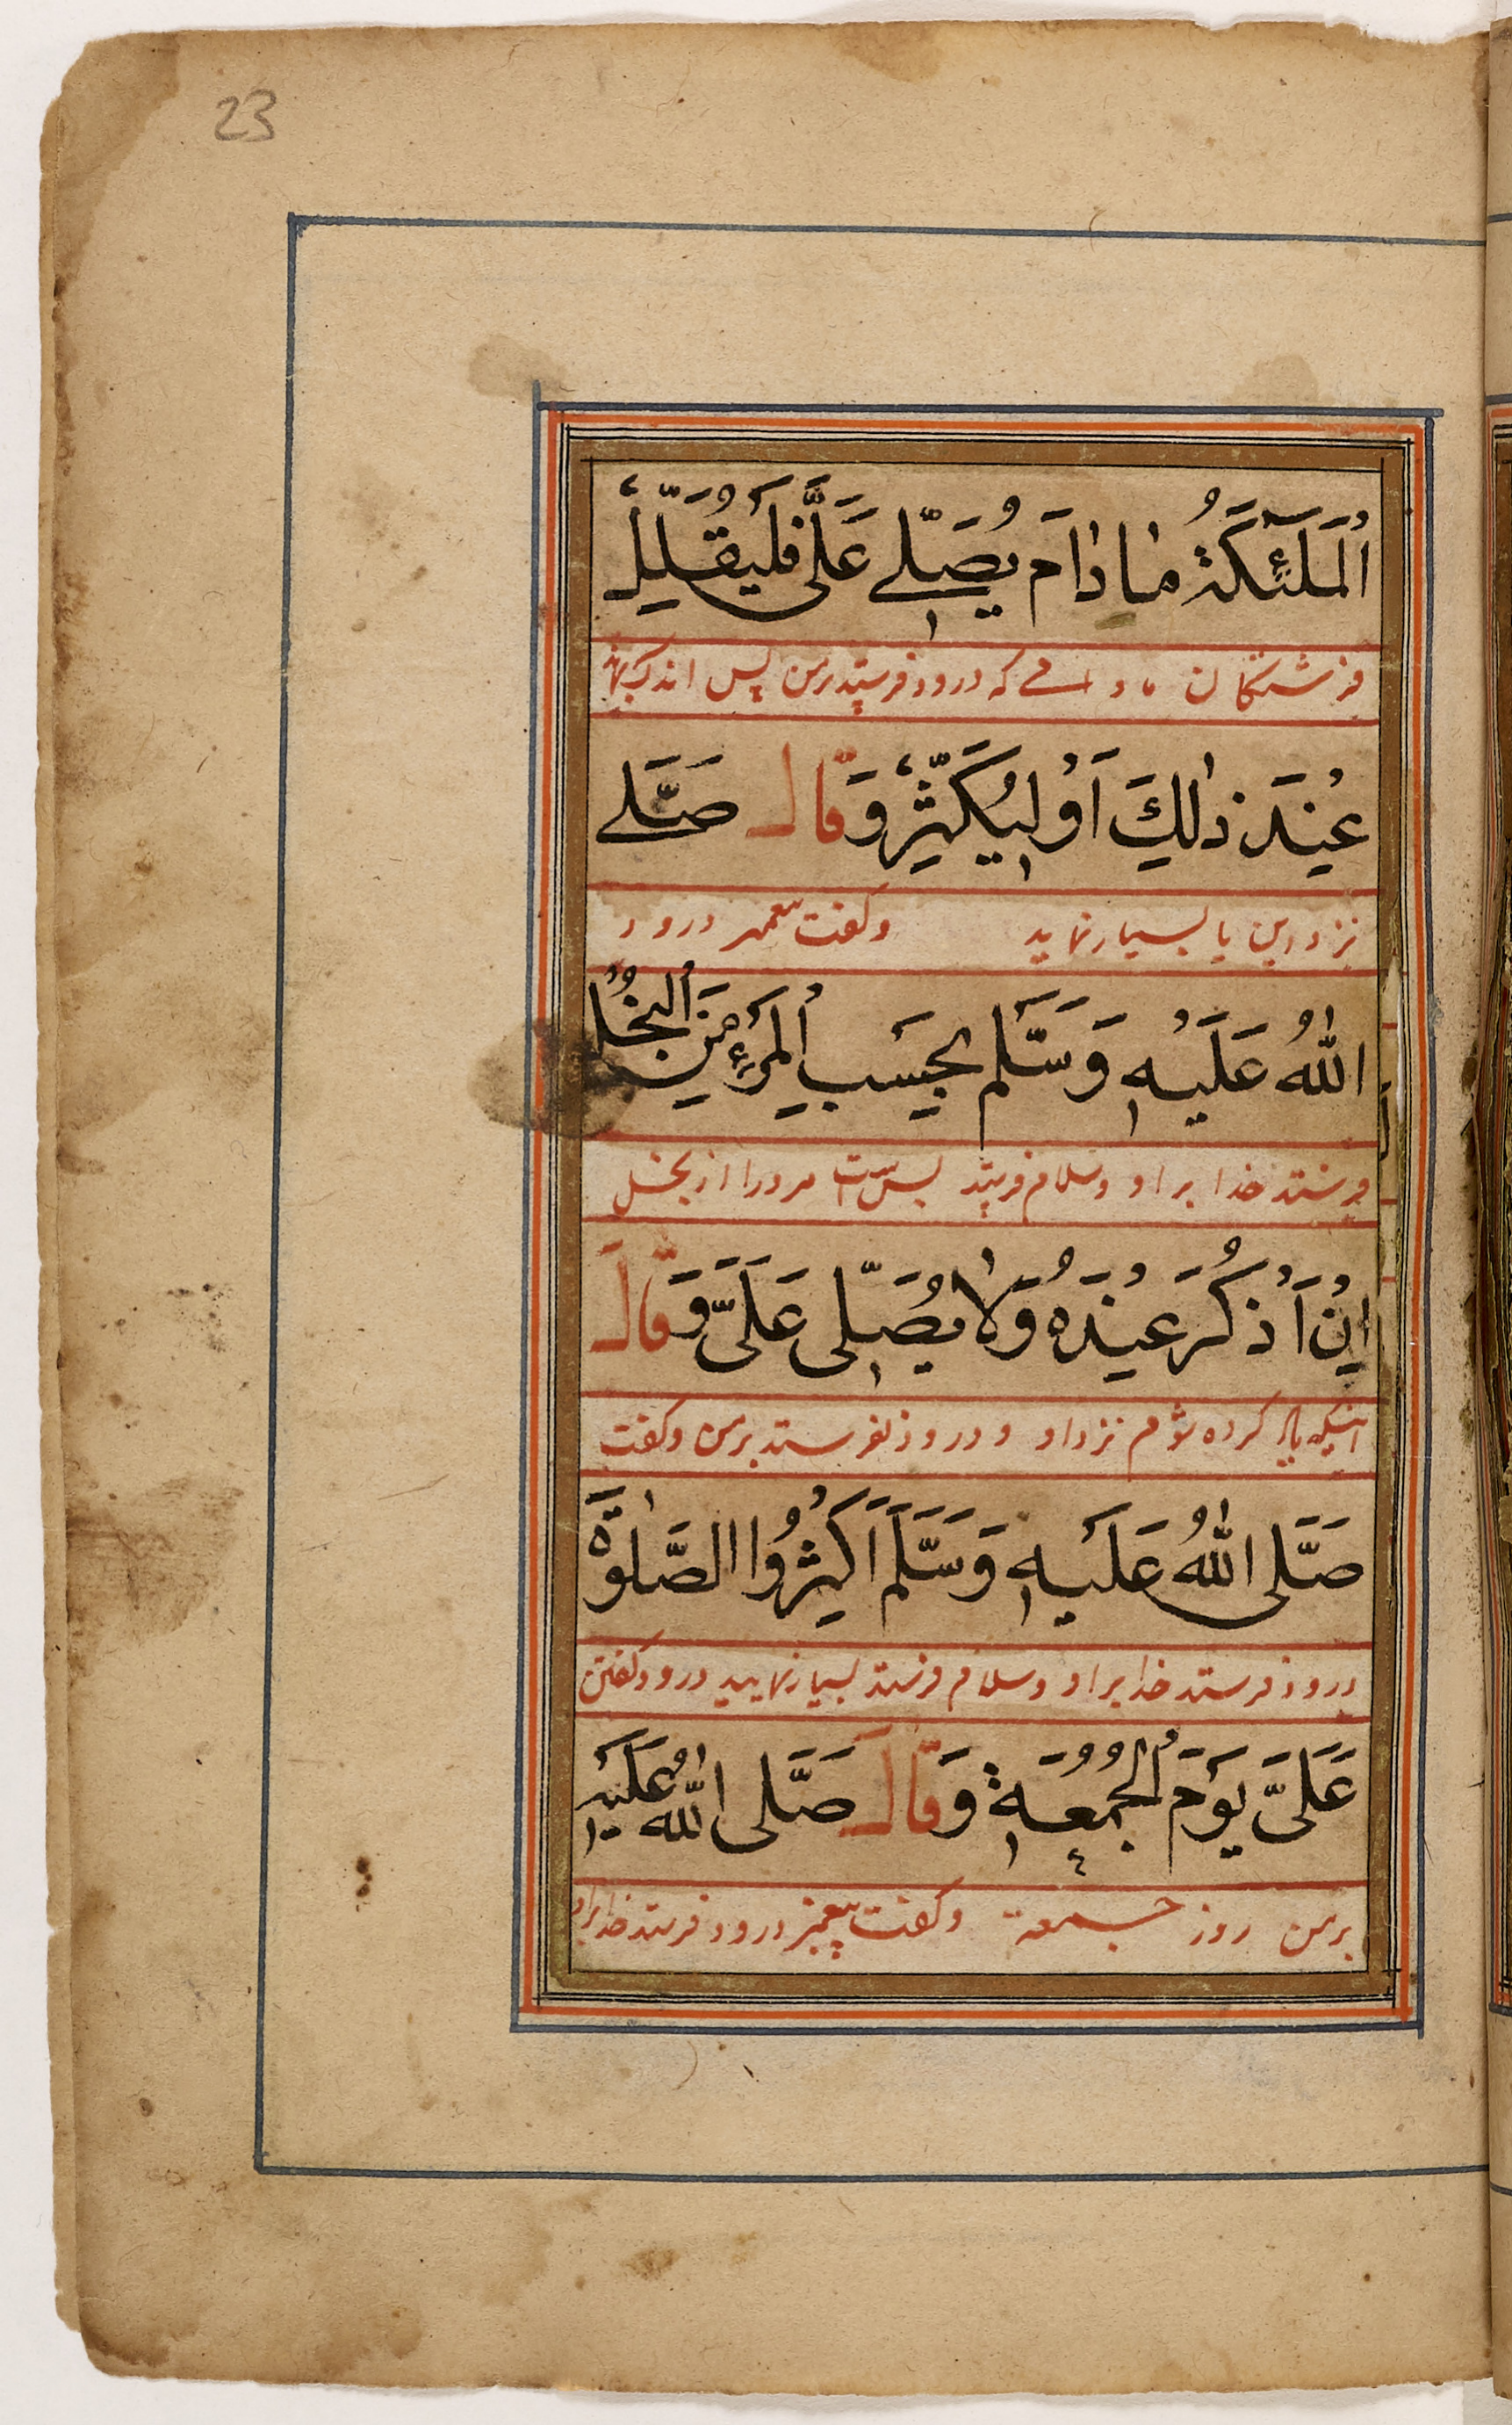 23
اَلْمَلٰٓئِكَةُ مٰا دٰامَ يُصَلّٖے عَلَیَّ فَلْيُقَلِّلْ
فرشتگان مادامے که درود فرستد برمن پس اندک
عِنْدَ ذٰلِكَ اَوْ لِيُكَثِّرْ وَقَالَ صَلَّے
نزد این یا بسیار نماید وکفت پیغمبر درود
اللّٰهُ عَلَيْهِ وَسَلَّمَ بِحَسَبِ الْمَرْءِ مِنَ الْبُخْلِ
فرستد خدا براو وسلام فرستد بس است مردرا از بخل
اِنْ اُذْكَرَ عِنْدَهُ وَلاٰ يُصَلّٖى عَلَیَّ وَقَالَ
اینکه یاد کرده شوم نزد او و درود نفرستد برمن وکفت
صَلَّى اللّٰهُ عَلَيْهِ وَسَلَّمَ اَكْثِرُوا الصَّلٰوةَ
درود فرستد خدا براو وسلام فرستد بسیار نمایید درود کفتن
عَلَیَّ يَوْمَ الْجُمُعَةِ وَقَالَ صَلَّى اللّٰهُ عَلَيْهِ
برمن روز جمعه وکفت پیغمبر درود فرستد خدا براو